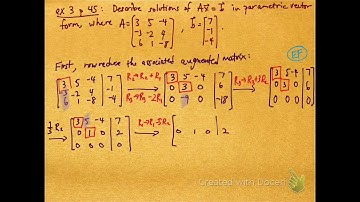 ex 3 p 45: Describe solutions of Ax̄ = b̄ in parametric vector
form, where A = [3 5 -4; -3 -2 4; 6 1 -8], b̄ = [7; -1; -4].
First, row reduce the associated augmented matrix: EF
[3 5 -4 | 7; -3 -2 4 | -1; 6 1 -8 | -4] R2→R2+R1 R3→R3-2R1 [3 5 -4 | 7; 0 3 0 | 6; 0 -9 0 | -18] R3→R3+3R2 [3 5 -4 | 7; 0 3 0 | 6; 0 0 0 | 0]
1/3 R2 [3 5 -4 | 7; 0 1 0 | 2; 0 0 0 | 0] R1→R1-5R2 [0 1 0 2
Created with Doceri